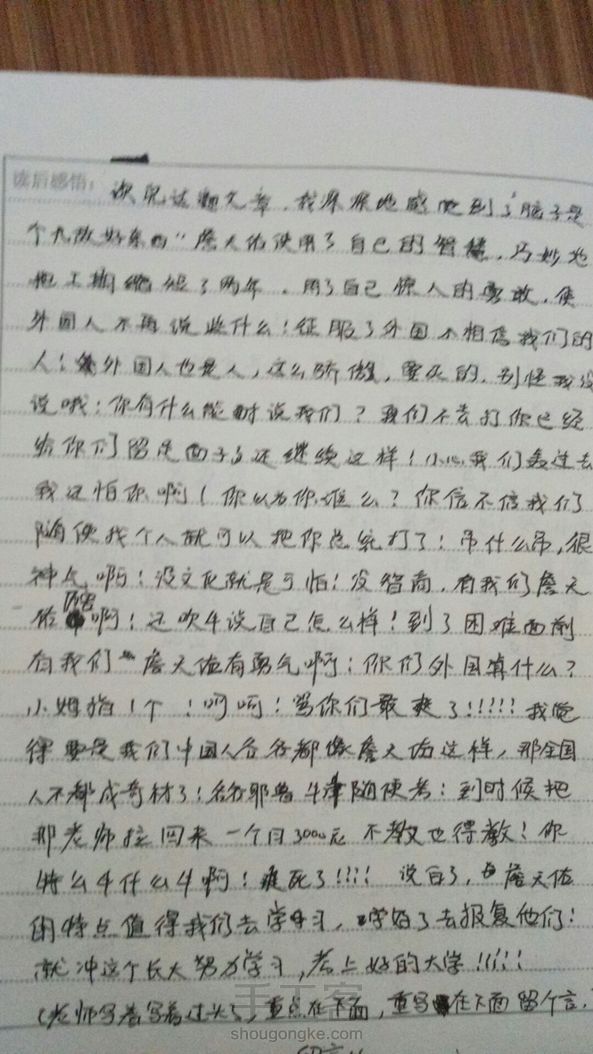 读后感悟:
读完这篇文章,我深深地感觉到了"脑子是
个 好东西"詹天佑使用了自己的智慧,巧妙地
把工期缩短了两年。用了自己惊人的勇敢,使
外国人不再说些什么!征服了外国不相信我们的
人!外国人也是人,这么骄傲,要灭的,别怪我没
说哦!你有什么能耐说我们?我们不去打你已经
给你们留足面子了还继续这样!小心我们轰过去
我还怕你啊!你以为你谁么?你信不信我们
随便找个人就可以把你总统打了!吊什么吊,很
神气啊!没文化就是可怕!没智商,有我们詹天
佑 啊!还吹牛说自己怎么样!到了困难面前
有我们詹天佑有勇气啊!你们外国算什么?
小姆指1个!呵呵!骂你们最爽了!!!!!我觉
得要是我们中国人各各都像詹天佑这样,那全国
人不都成奇材了!各各耶鲁牛津随便考!到时候把
那老师拉回来一个月3000元不教也得教!你
特么牛什么牛啊!难死了!!!!说白了,詹天佑
的特点值得我们去学习,学好了去报复他们!
就冲这个长大努力学习,考上好的大学!!!!!
(老师写着写着过头了,重点在下面,重写在下面留个言.
手工客
shougongke.com